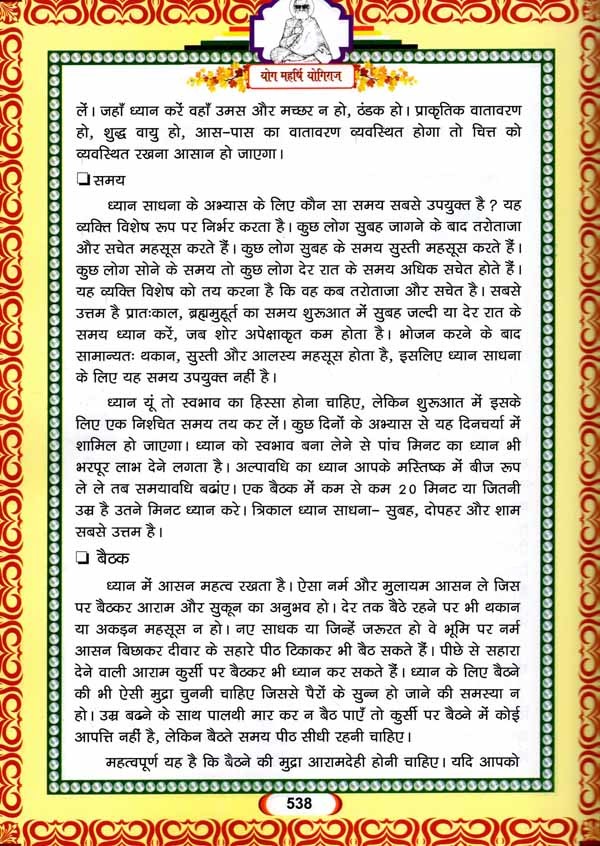 योग महर्षि योगिराज
लें। जहाँ ध्यान करें वहाँ उमस और मच्छर न हो, ठंडक हो। प्राकृतिक वातावरण
हो, शुद्ध वायु हो, आस-पास का वातावरण व्यवस्थित होगा तो चित्त को
व्यवस्थित रखना आसान हो जाएगा।
❑ समय
ध्यान साधना के अभ्यास के लिए कौन सा समय सबसे उपयुक्त है ? यह
व्यक्ति विशेष रूप पर निर्भर करता है। कुछ लोग सुबह जागने के बाद तरोताजा
और सचेत महसूस करते हैं। कुछ लोग सुबह के समय सुस्ती महसूस करते हैं।
कुछ लोग सोने के समय तो कुछ लोग देर रात के समय अधिक सचेत होते हैं।
यह व्यक्ति विशेष को तय करना है कि वह कब तरोताजा और सचेत है। सबसे
उत्तम है प्रातःकाल, ब्रह्ममुहूर्त का समय शुरूआत में सुबह जल्दी या देर रात के
समय ध्यान करें, जब शोर अपेक्षाकृत कम होता है। भोजन करने के बाद
सामान्यतः थकान, सुस्ती और आलस्य महसूस होता है, इसलिए ध्यान साधना
के लिए यह समय उपयुक्त नहीं है।
ध्यान यूं तो स्वभाव का हिस्सा होना चाहिए, लेकिन शुरूआत में इसके
लिए एक निश्चित समय तय कर लें। कुछ दिनों के अभ्यास से यह दिनचर्या में
शामिल हो जाएगा। ध्यान को स्वभाव बना लेने से पांच मिनट का ध्यान भी
भरपूर लाभ देने लगता है। अल्पावधि का ध्यान आपके मस्तिष्क में बीज रूप
ले ले तब समयावधि बढांए। एक बैठक में कम से कम 20 मिनट या जितनी
उम्र है उतने मिनट ध्यान करे। त्रिकाल ध्यान साधना- सुबह, दोपहर और शाम
सबसे उत्तम है।
❑ बैठक
ध्यान में आसन महत्व रखता है। ऐसा नर्म और मुलायम आसन ले जिस
पर बैठकर आराम और सुकून का अनुभव हो। देर तक बैठे रहने पर भी थकान
या अकड़न महसूस न हो। नए साधक या जिन्हें जरूरत हो वे भूमि पर नर्म
आसन बिछाकर दीवार के सहारे पीठ टिकाकर भी बैठ सकते हैं। पीछे से सहारा
देने वाली आराम कुर्सी पर बैठकर भी ध्यान कर सकते हैं। ध्यान के लिए बैठने
की भी ऐसी मुद्रा चुननी चाहिए जिससे पैरों के सुन्न हो जाने की समस्या न
हो। उम्र बढने के साथ पालथी मार कर न बैठ पाएँ तो कुर्सी पर बैठने में कोई
आपत्ति नहीं है, लेकिन बैठते समय पीठ सीधी रहनी चाहिए।
महत्वपूर्ण यह है कि बैठने की मुद्रा आरामदेही होनी चाहिए। यदि आपको
538